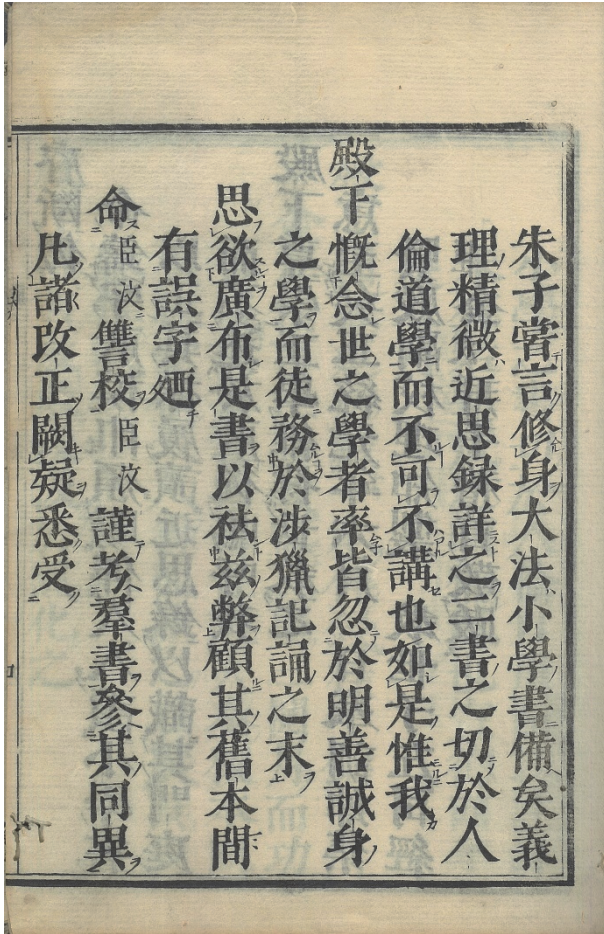 朱子嘗言修身大法小學書備矣義
理精微近思録詳之二書之切於人
倫道學而不可不講也如是惟我
殿下慨念世之學者率皆忽於明善誠身
之學而徒務於涉獵記誦之末
思欲廣布是書以祛玆弊顧其舊本間
有誤字廼
命臣汶讐校臣汶謹考羣書參其同異
凡諸改正闕疑悉受